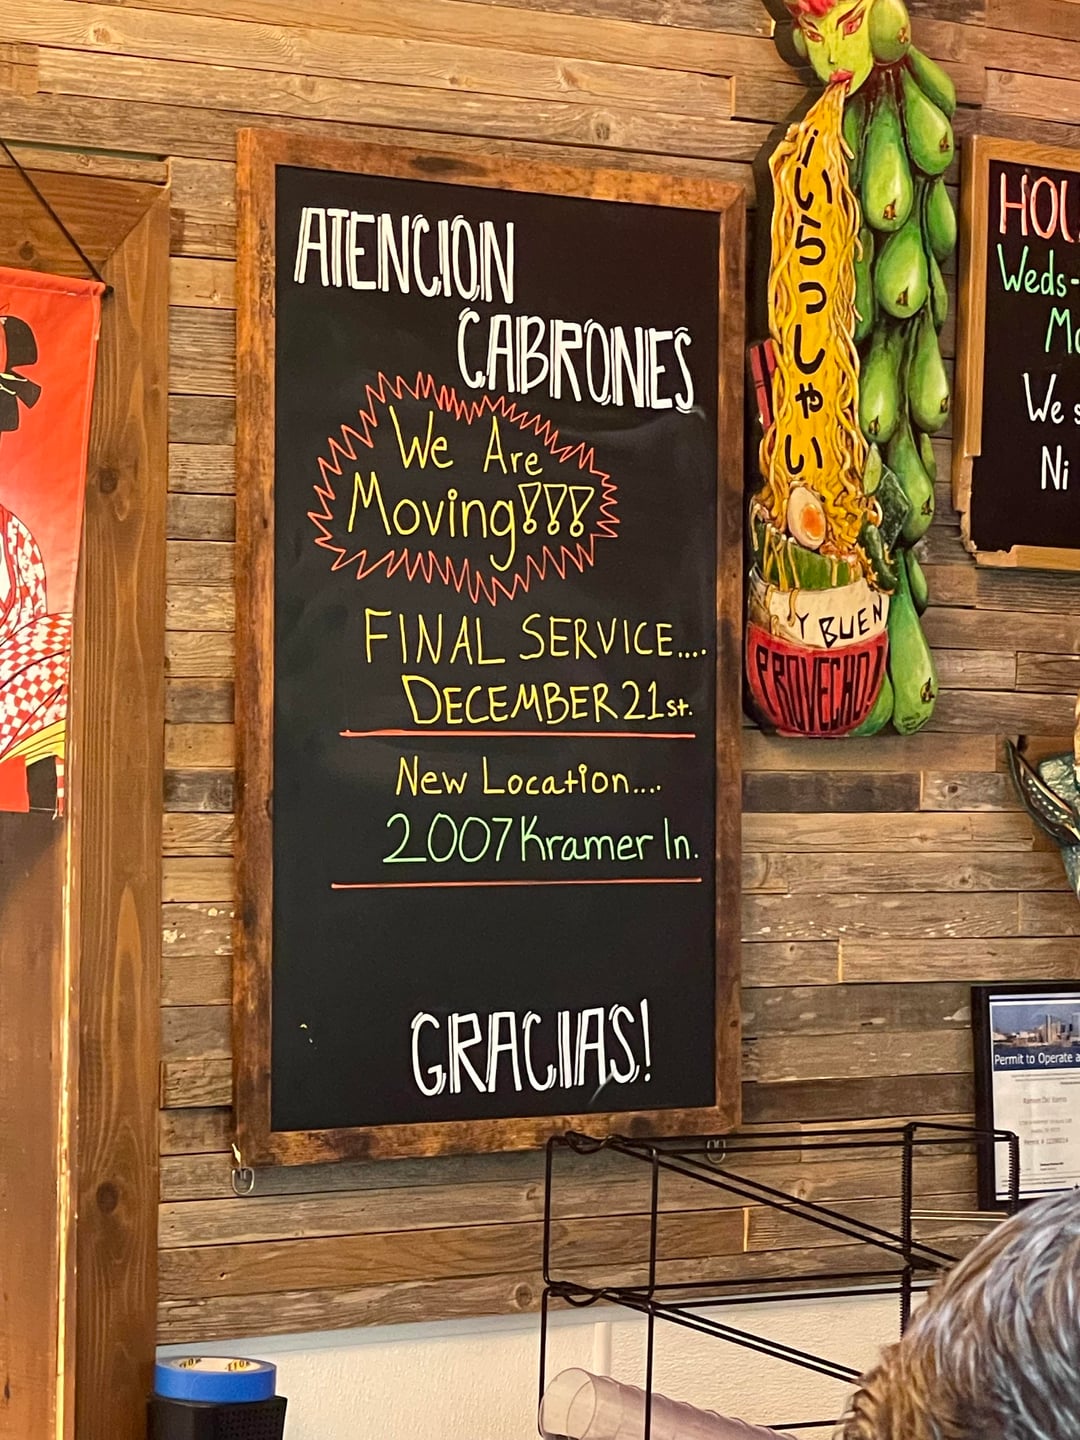 ATENCION
CABRONES
We Are
Moving!!!
FINAL SERVICE....
DECEMBER 21st.
New Location....
2007 Kramer ln.
GRACIAS!
¡いらっしゃい
Y BUEN
PROVECHO!
HOL
Weds-
Mo
We s
Ni
Permit to Operate a